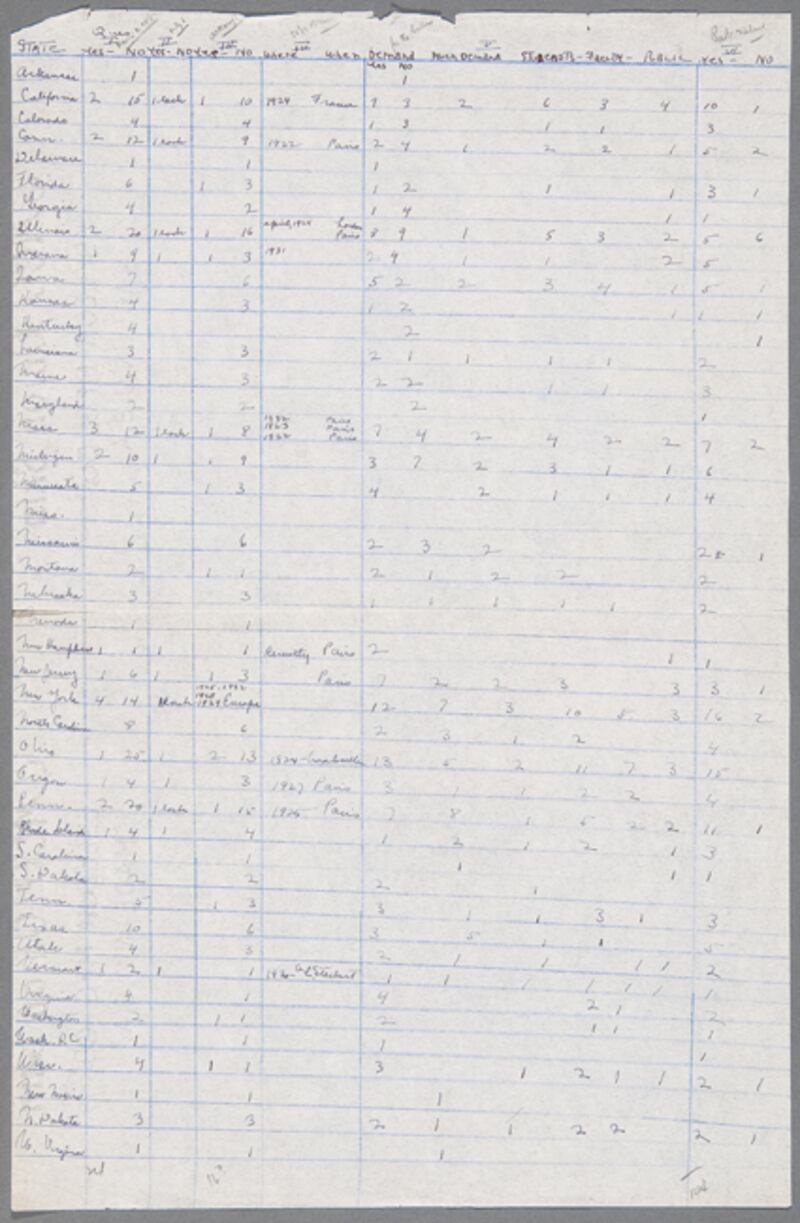 STATE Yes- No Yes- No Yes No where when Demand Much Demand Students- Faculty- Public Yes- No
Yes No
Arkansas 1 1
California 2 15 1 each 1 10 1924 France 7 3 2 6 3 4 10 1
Colorado 4 4 1 3 1 1 3
Conn. 2 12 1 each 9 1922 Paris 2 4 1 2 2 1 5 2
Delaware 1 1 1
Florida 6 1 3 1 2 1 1 3 1
Georgia 4 2 1 4 1 1
Illinois 2 20 1 each 1 16 April, 1924 London Paris 8 9 1 5 3 2 5 6
Indiana 1 9 1 1 3 1931 2 4 1 1 2 5
Iowa 7 6 5 2 2 3 4 1 5 1
Kansas 4 3 1 2 1 1 1
Kentucky 4 2 1
Louisiana 3 3 2 1 1 1 1 2
Maine 4 3 2 2 1 1 3
Maryland 2 2 2 1
Mass 3 12 1 each 1 8 1923 Paris 1922 Paris 7 4 2 4 2 2 7 2
Michigan 2 10 1 1 9 3 7 2 3 1 1 6
Minnesota 5 1 3 4 2 1 1 1 4
Miss. 1
Missouri 6 6 2 3 2 2 1
Montana 2 1 1 2 1 2 2 2
Nebraska 3 3 1 1 1 1 1 2
Nevada 1 1
New Hampshire 1 1 1 1 Recently Paris 2 1 1
New Jersey 1 6 1 1 3 Paris 7 2 2 3 3 3 1
New York 4 14 Europe 12 7 3 10 5 3 16 2
North Carolina 8 6 2 3 1 2 4
Ohio 1 25 1 2 13 1924 13 6 2 11 7 3 15
Oregon 1 4 1 3 1927 Paris 3 1 1 2 2 4
Penn. 2 20 1 each 1 15 1925 Paris 7 8 1 5 2 2 11 1
Rhode Island 1 4 1 4 1 2 1 2 1 3
S. Carolina 1 1 1 1 1
S. Dakota 2 2 2 1
Tenn 5 1 3 3 1 1 3 1 3
Texas 10 6 3 5 1 1 5
Utah 4 3 2 1 1 1 1 2
Vermont 1 2 1 1 1926 1 1 1 1 1 1 1
Virginia 4 1 4 2 1 2
Washington 2 1 1 2 1 1 1
Wash. D.C 1 1 1 1
Wisc. 4 1 1 3 1 2 1 1 2 1
New Mexico 1 1 1
N. Dakota 3 3 2 1 1 2 2 2 1
W. Virginia 1 1 1